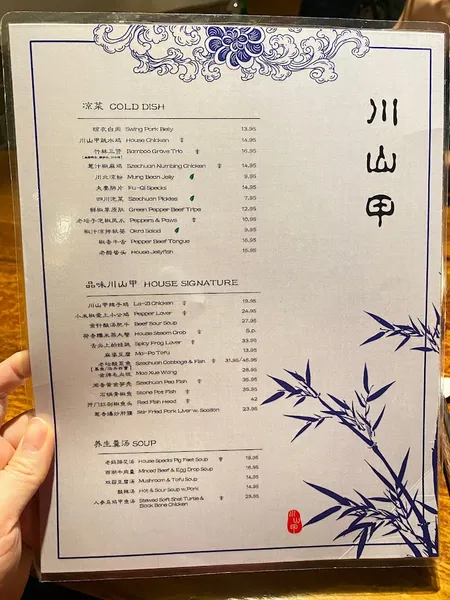 川山甲
凉菜 COLD DISH
晾衣白肉 Swing Pork Belly 13.95
川山甲跳水鸡 House Chicken 14.95
竹林三赞 Bamboo Grove Trio 16.95
葱汁椒麻鸡 Szechuan Numbing Chicken 14.95
川北凉粉 Mung Bean Jelly 9.95
夫妻肺片 Fu-Qi Specks 14.95
四川泡菜 Szechuan Pickles 7.95
鲜椒草原肚 Green Pepper Beef Tripe 12.95
老坛子泡椒凤爪 Peppers & Paws 10.95
椒汁凉拌秋葵 Okra Salad 9.95
椒香牛舌 Pepper Beef Tongue 16.95
老醋蜇头 House Jellyfish 15.95
品味川山甲 HOUSE SIGNATURE
川山甲辣子鸡 La-Zi Chicken 19.95
小米椒爱上小公鸡 Pepper Lover 24.95
金针酸汤肥牛 Beef Sour Soup 27.95
House Steam Crab S.p.
舌尖上的蛙跳 Spicy Frog Lover 33.95
麻婆豆腐 Ma-Po Tofu 13.95
老坛酸菜鱼 Szechuan Cabbage & Fish 31.95/45.95
金牌毛血旺 Mao Xue Wang 28.95
Szechuan Pea Fish 35.95
石锅青椒鱼 Stone Pot Fish 35.95
开门红剁椒鱼头 Red Fish Head 42
葱香爆炒肝腰 Stir Fried Pork Liver w. Scallion 23.95
养生羹汤 SOUP
老妈蹄花汤 House Specks Pig Feet Soup 18.95
西湖牛肉羹 Minced Beef & Egg Drop Soup 16.95
双菇豆腐汤 Mushroom & Tofu Soup 14.95
酸辣汤 Hot & Sour Soup w.Pork 14.95
人参乌鸡甲鱼汤 Stewed Soft Shell Turtle & 29.95
Black Bone Chicken
川山甲